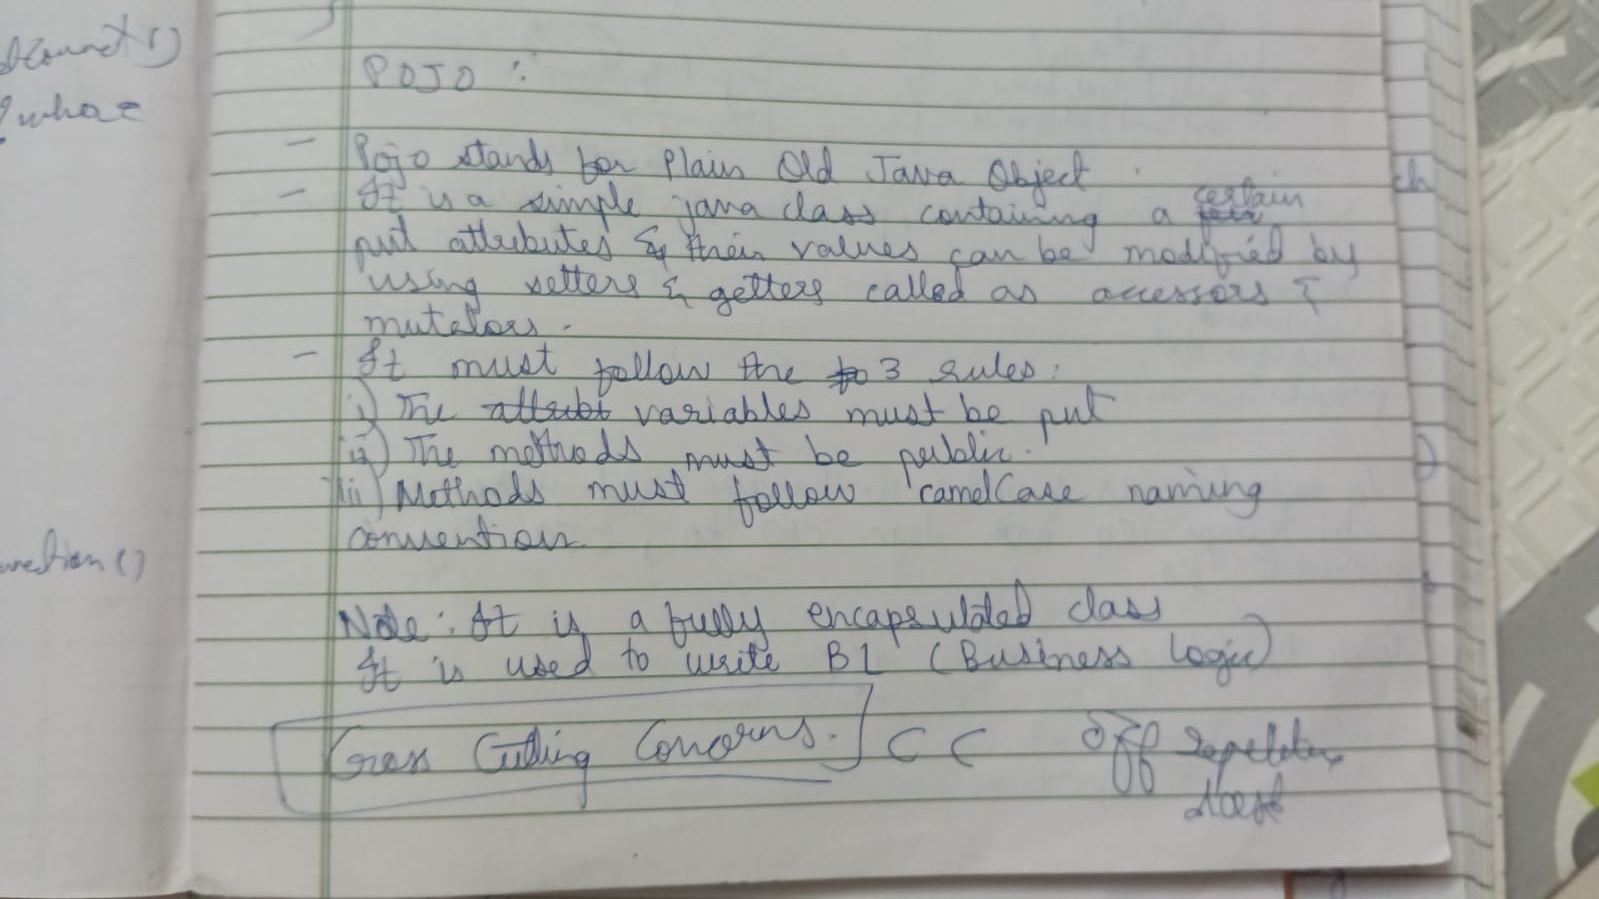 POJO :
- Pojo stands for Plain Old Java Object.
- It is a simple java class containing a certain
pvt attributes & their values can be modified by
using setters & getters called as accessors &
mutators.
- It must follow the 3 rules:
i) The variables must be pvt
ii) The methods must be public.
iii) Methods must follow 'camelCase naming
convention.
Note: It is a fully encapsulated class
It is used to write BL (Business Logic)
Cross Cutting Concerns. CC